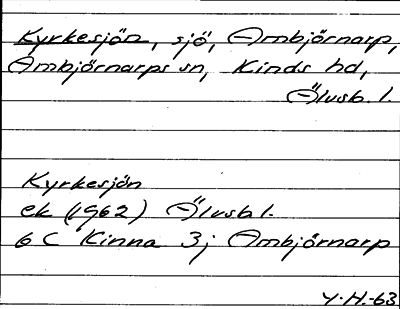 Kyrkesjön, sjö, Ambjörnarp,
Ambjörnarps sn, Kinds hd,
Älvsb. l.
Kyrkesjön
ek (1962) Älvsb l.
6 C Kinna 3j Ambjörnarp
Y.H.-63